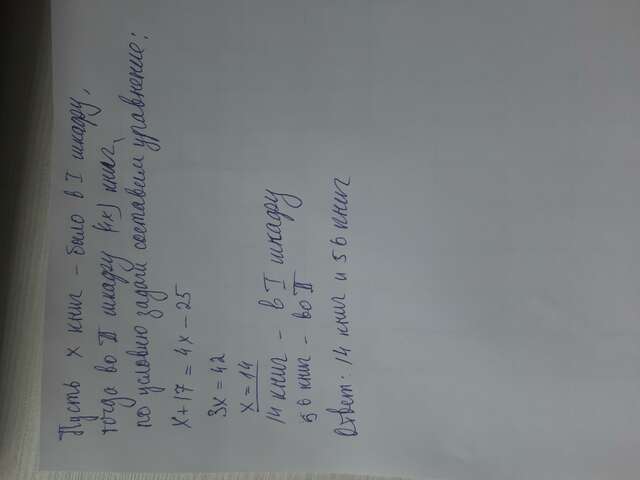 Пусть x книг - было в I шкафу,
тогда во II шкафу (4x) книг,
по условию задачи составим уравнение:
x+17=4x-25
3x=42
x=14
14 книг - в I шкафу
56 книг - во II
Ответ: 14 книг и 56 книг